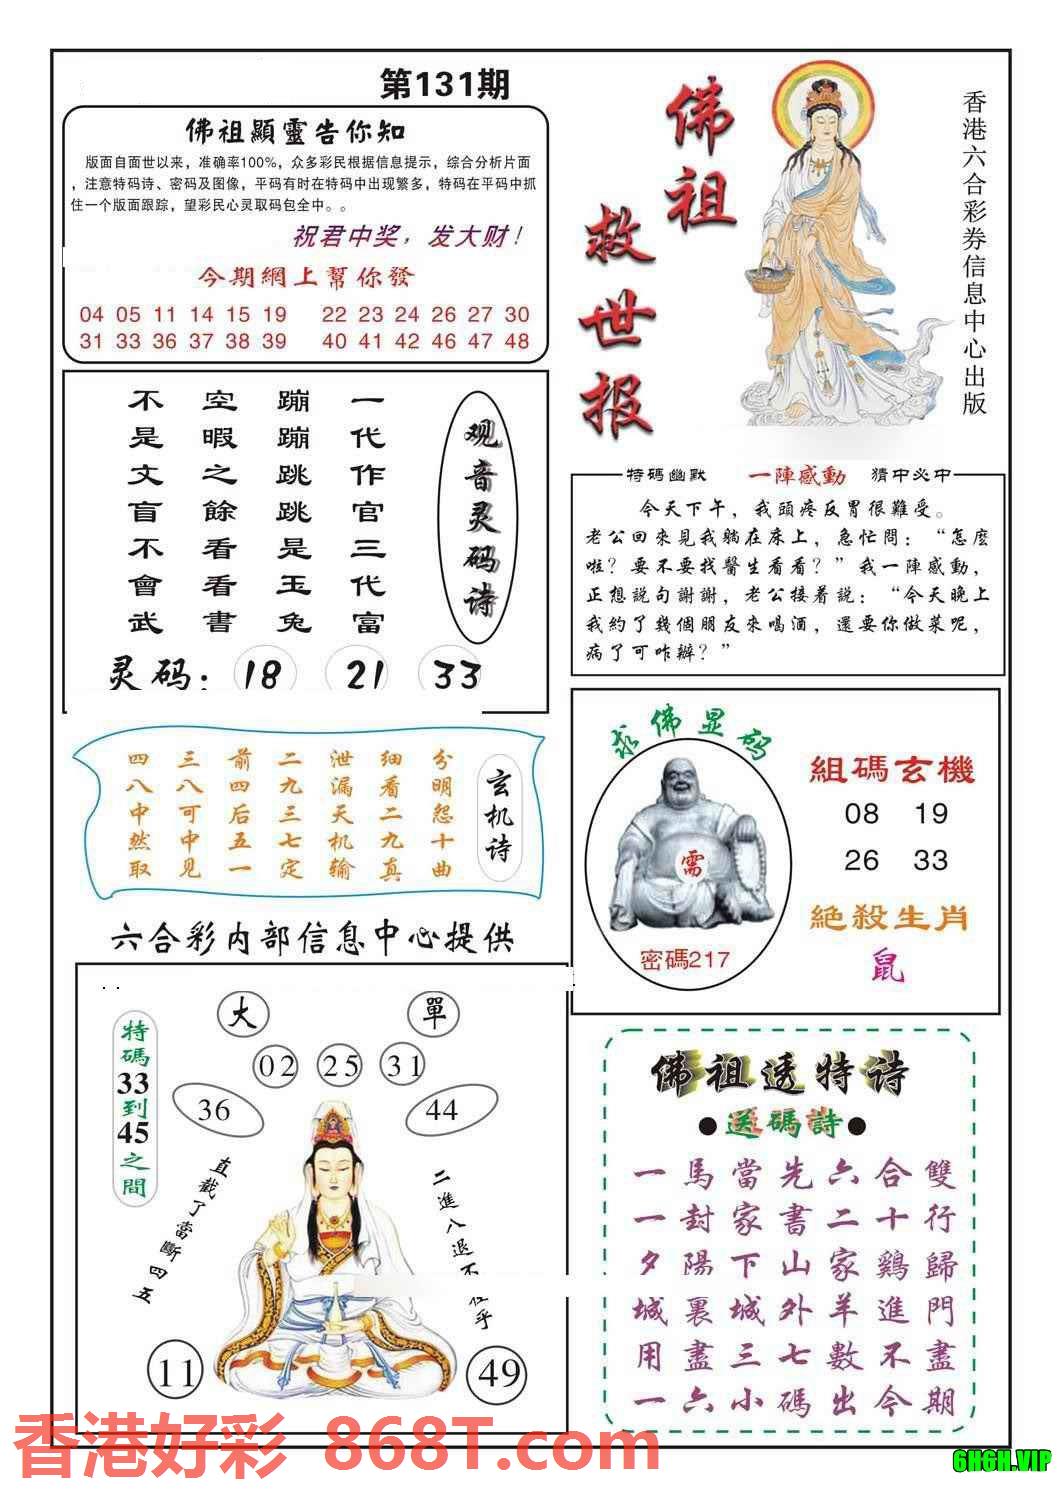 第131期
佛祖顯靈告你知
版面自面世以来，准确率100%，众多彩民根据信息提示，综合分析片面
，注意特码诗、密码及图像，平码有时在特码中出现繁多，特码在平码中抓
住一个版面跟踪，望彩民心灵取码包全中。。
祝君中奖，发大财！
今期網上幫你發
04 05 11 14 15 19 22 23 24 26 27 30
31 33 36 37 38 39 40 41 42 46 47 48
佛祖
救世报
香港六合彩券信息中心出版
观音灵码诗
一代作官三代富
蹦蹦跳跳是玉兔
空暇之餘看看書
不是文盲不會武
灵码：18 21 33
特碼幽默 一陣感動 猜中必中
今天下午，我頭疼反胃很難受。
老公回來見我躺在床上，急忙問：“怎麼
啦？要不要找醫生看看？”我一陣感動，
正想説句謝謝，老公接着説：“今天晚上
我約了幾個朋友來喝酒，還要你做菜呢，
病了可咋辦？”
玄机诗
分明怨十曲
细看二九真
泄漏天机输
二九三七定
前四后五一
三八可中见
四八中然取
求佛显码
需
密碼217
組碼玄機
08 19
26 33
絶殺生肖
鼠
六合彩内部信息中心提供
大 單
02 25 31
36 44
特碼33到45之間
直截了當斷四五
二進八退不在乎
11 49
佛祖透特诗
●送碼詩●
一馬當先六合雙
一封家書二十行
夕陽下山家鷄歸
城裏城外羊進門
用盡三七數不盡
一六小碼出今期
香港好彩 868T.com
6H6H.VIP